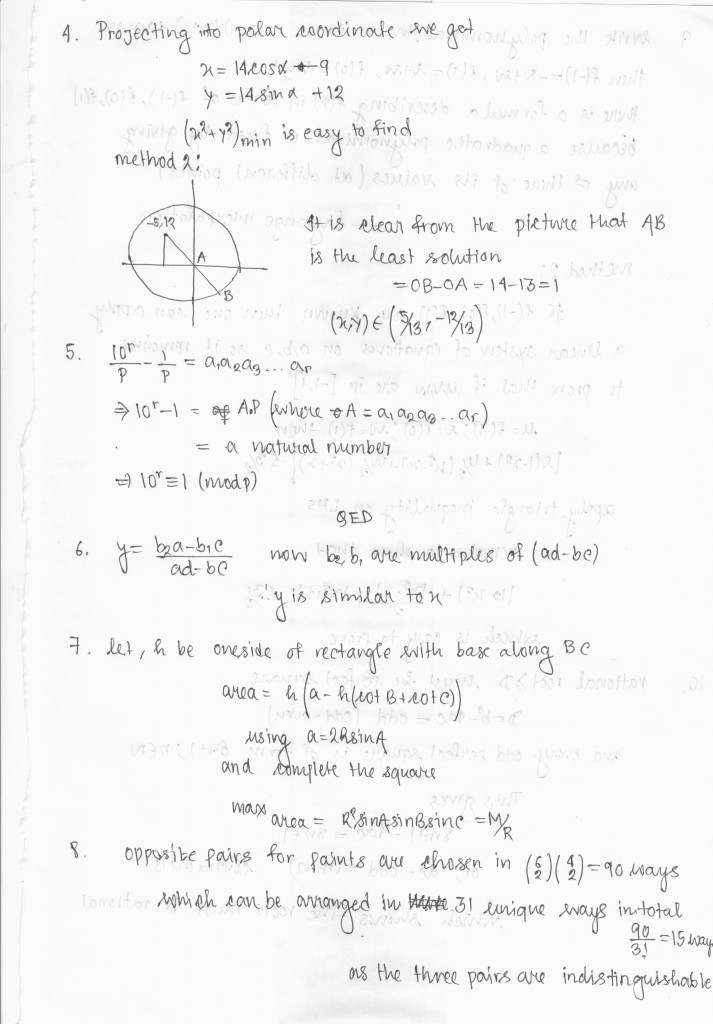 4. Projecting into polar coordinate we get
x = 14cosα - 9
y = 14sinα + 12
(x²+y²)min is easy to find
method 2:
-5,12
A
B
It is clear from the picture that AB
is the least solution
= OB-OA = 14-13=1
(x,y) ∈ (5/13, -12/13)
5. 10^r/p - 1/p = a₁a₂a₃...ar
⇒ 10^r-1 = A.P (where A = a₁a₂a₃...ar)
= a natural number
⇒ 10^r ≡ 1 (mod p)
QED
6. y = (b₂a-b₁c)/(ad-bc) now b₂,b₁ are multiples of (ad-bc)
∴ y is similar to x
7. let, h be oneside of rectangle with base along BC
area = h(a-h(cotB+cotC))
using a=2RsinA
and complete the square
max area = R²sinAsinBsinC = M/R
8. opposite pairs for paints are chosen in (6 2)(4 2)=90 ways
which can be arranged in 3! unique ways in total
90/3! = 15 way
as the three pairs are indistinguishable